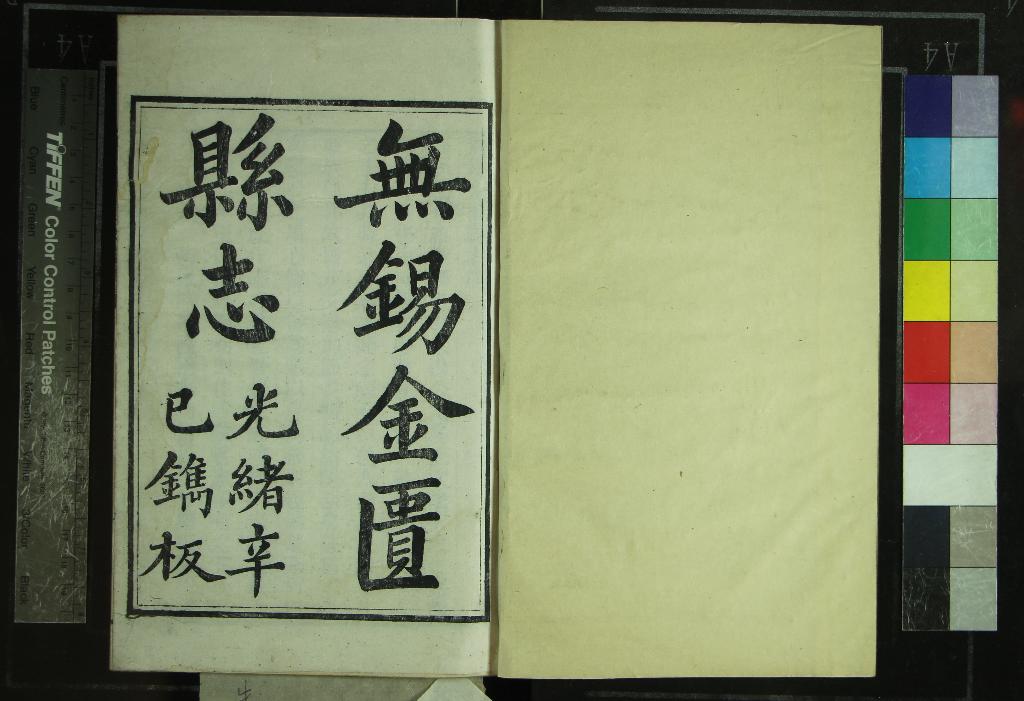 無錫金匱
縣志
光緒辛
巳鐫板
TIFFEN Color Control Patches
Blue
Cyan
Green
Yellow
Red
Magenta
White
3/Color
Black
Centimetres
A4
A4